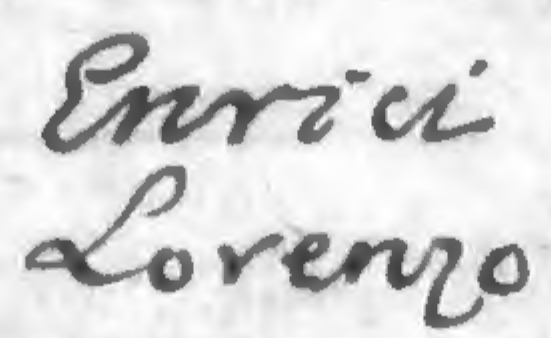 Enrici
Lorenzo